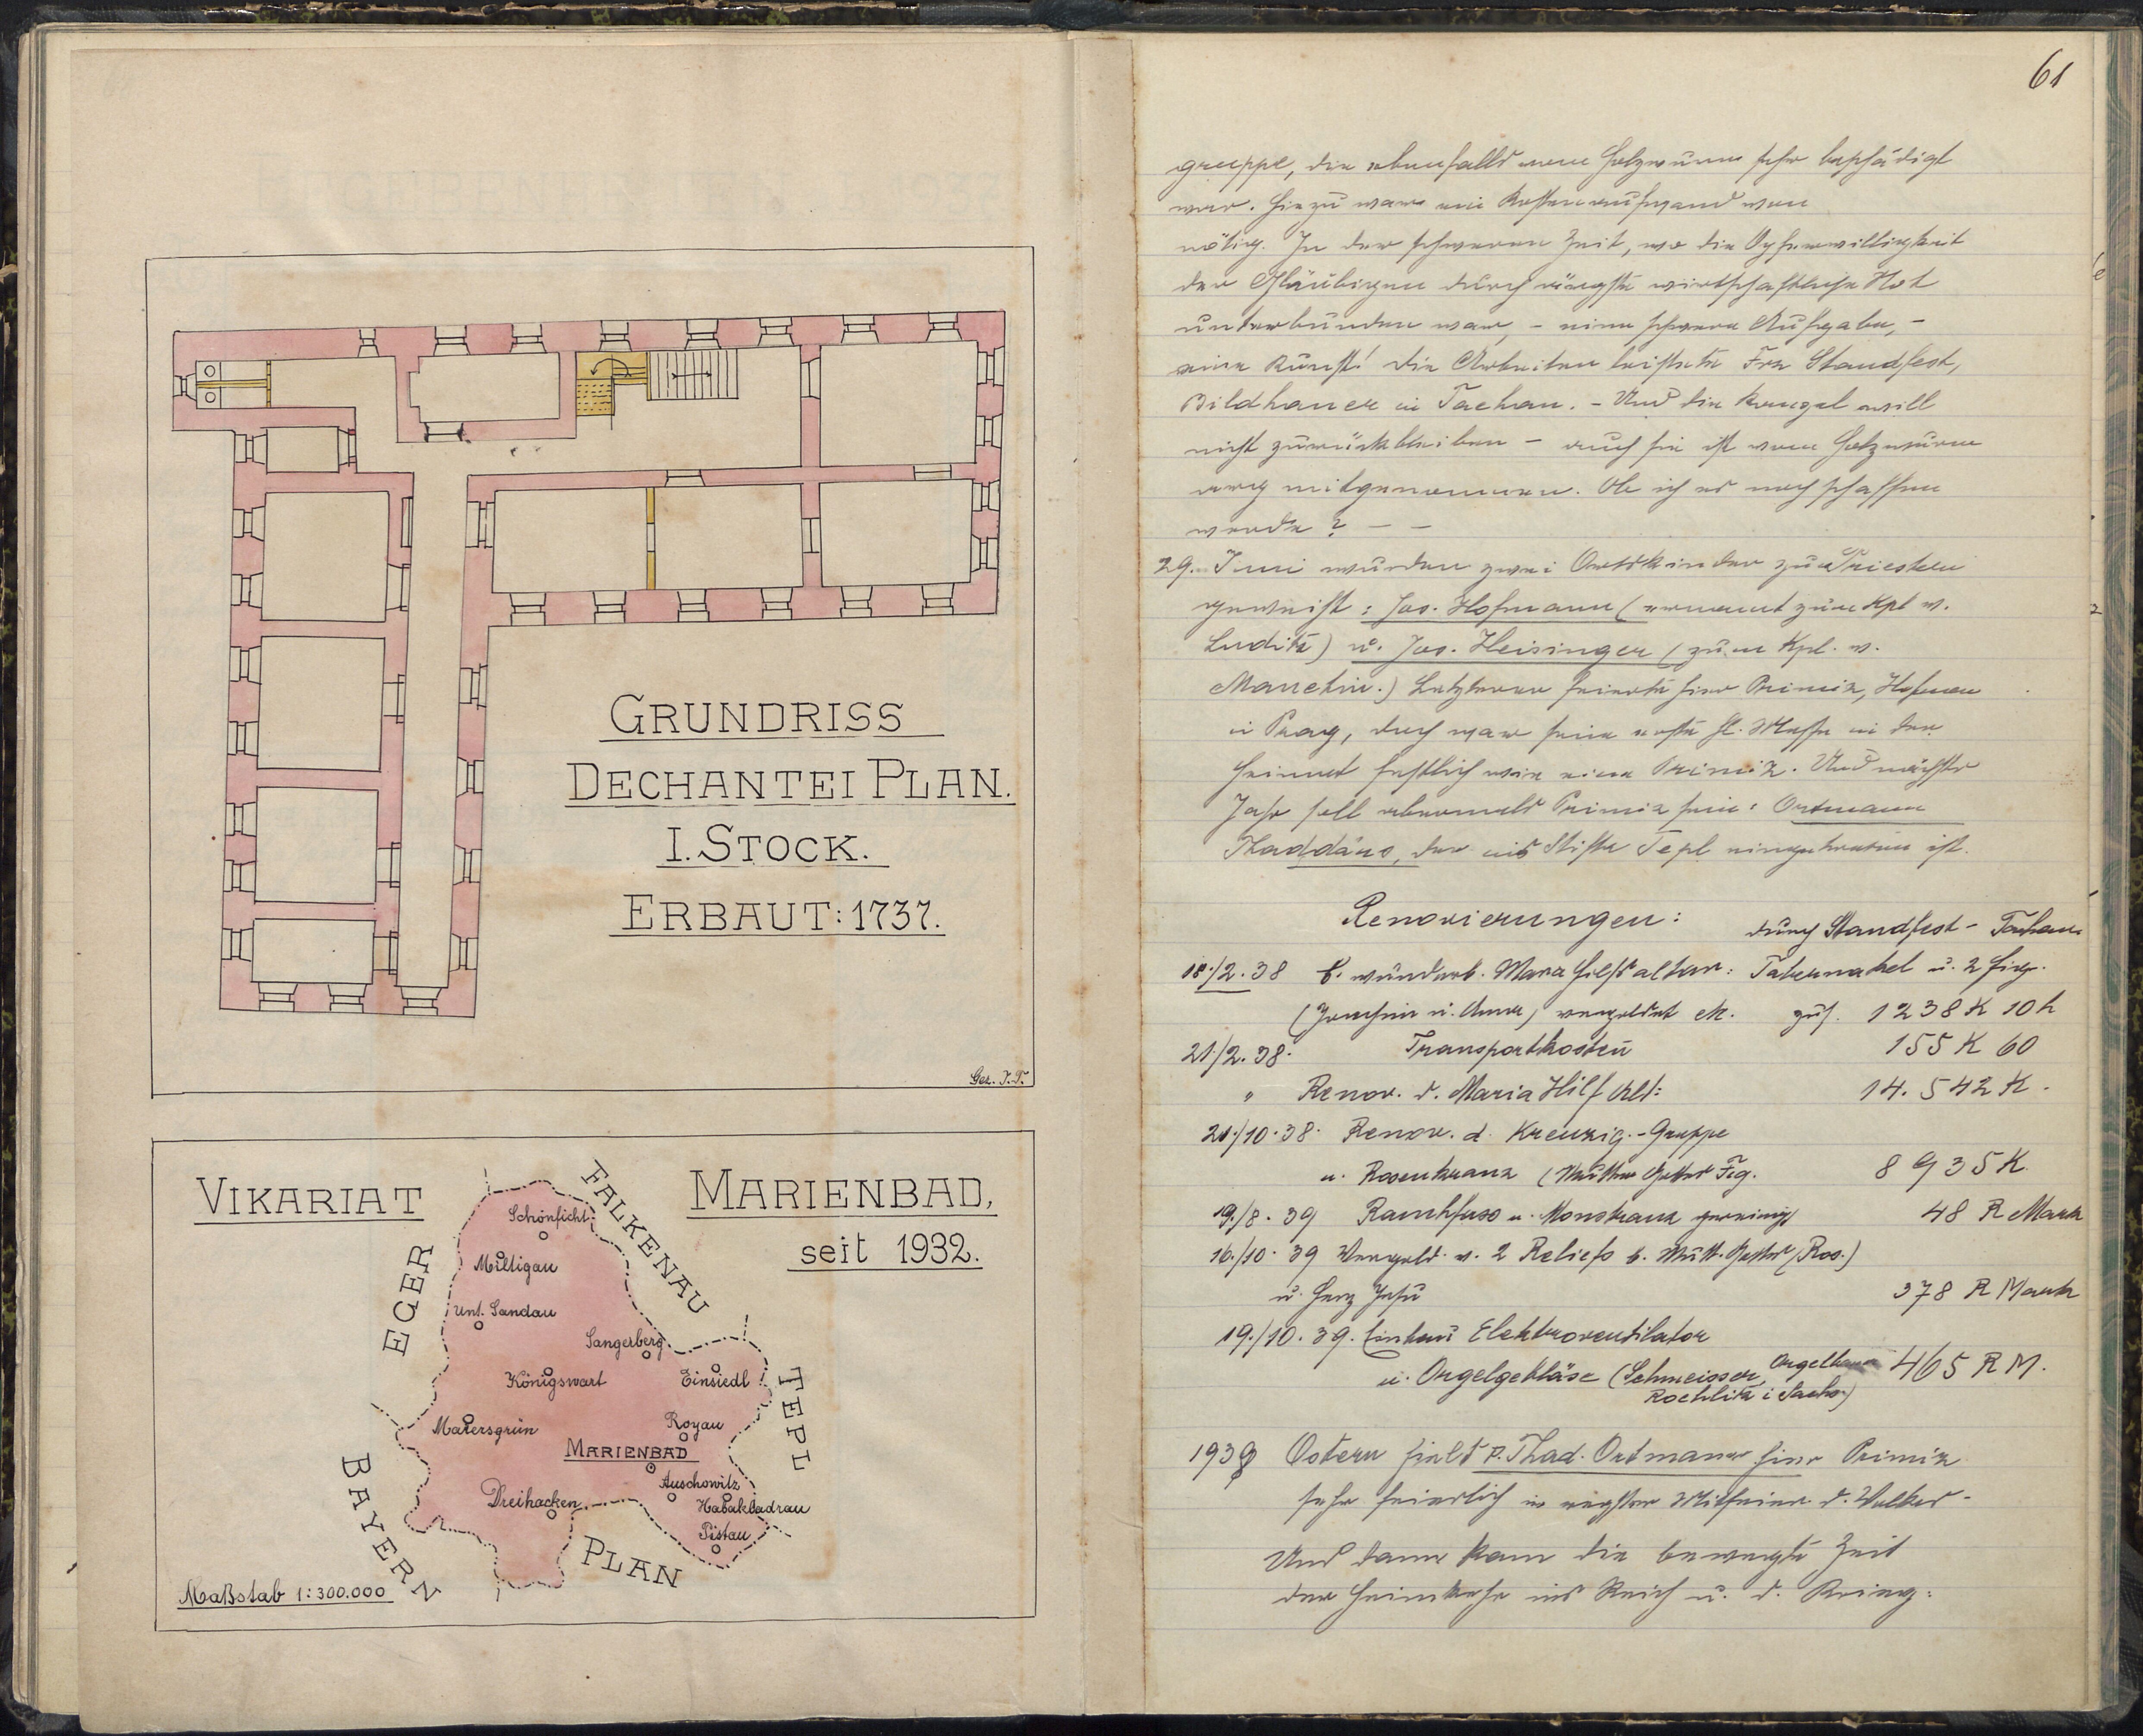 GRUNDRISS
DECHANTEI PLAN.
I. STOCK.
ERBAUT: 1737.
Gez. J.T.
VIKARIAT
MARIENBAD,
seit 1932.
FALKENAU
EGER
TEPL
BAYERN
PLAN
Schönficht
Miltigau
Unt. Sandau
Sangerberg
Königswart
Einsiedl
Maiersgrün
Royau
MARIENBAD
Auschowitz
Dreihacken
Habakladrau
Pistau
Maßstab 1:300.000
61
gruppe, die ebenfalls vom Holzwurm sehr beschädigt
war. Hiezu war ein Kostenaufwand von
nötig. In der schweren Zeit, wo die Opferwilligkeit
der Gläubigen durch ärgste wirtschaftliche Not
unterbunden war, – eine schwere Aufgabe, –
eine Kunst! Die Arbeiten leistete Frz Standfest,
Bildhauer in Tachau. – Und die Kanzel will
nicht zurückbleiben – auch sie ist vom Holzwurm
arg mitgenommen. Ob ich es noch schaffen
werde? – –
29. Juni wurden zwei Ortskinder zu Priestern
geweiht: Jos. Hofmann (ernannt zum Kpl v.
Luditz) u. Jos. Heisinger (zum Kpl. v.
Manetin.) Letzterer feierte hier Primiz, Hofmann
in Prag, doch war seine erste hl. Messe in der
Heimat festlich wie eine Primiz. Und nächstes
Jahr soll abermals Primiz sein: Ortmann
Thaddäus, der ins Stifte Tepl eingetreten ist.
Renovierungen:
durch Standfest – Tachau
18./2. 38 b. wunderb. Maria Hilfsaltar: Tabernakel u. 2 Fig.
(Joachim u. Anna) vergoldet etc. zus. 1238 K 10 h
21./2. 38. Transportkosten 155 K 60
" Renov. d. Maria Hilf Alt: 14.542 K.
21./10. 38. Renov. d. Kreuzig.-Gruppe
u. Rosenkranz (Mutter Gottes Fig. 8935 K.
19./8. 39 Rauchfass u. Monstranz gereinigt 48 R Mark
16./10. 39 Vergold. v. 2 Reliefs b. Mutt. Gottes (Ros.)
u. Herz Jesu 378 R Mark
19./10. 39. Einbau Elektroventilator
u. Orgelgebläse (Schmeisser, Orgelbauer
Rochlitz i Sachs.) 465 R M.
1939 Ostern hielt P. Thad. Ortmann hier Primiz
sehr feierlich in regster Mitfeier d. Volkes –
Und dann kam die bewegte Zeit
der Heimkehr ins Reich u. d. Krieg: